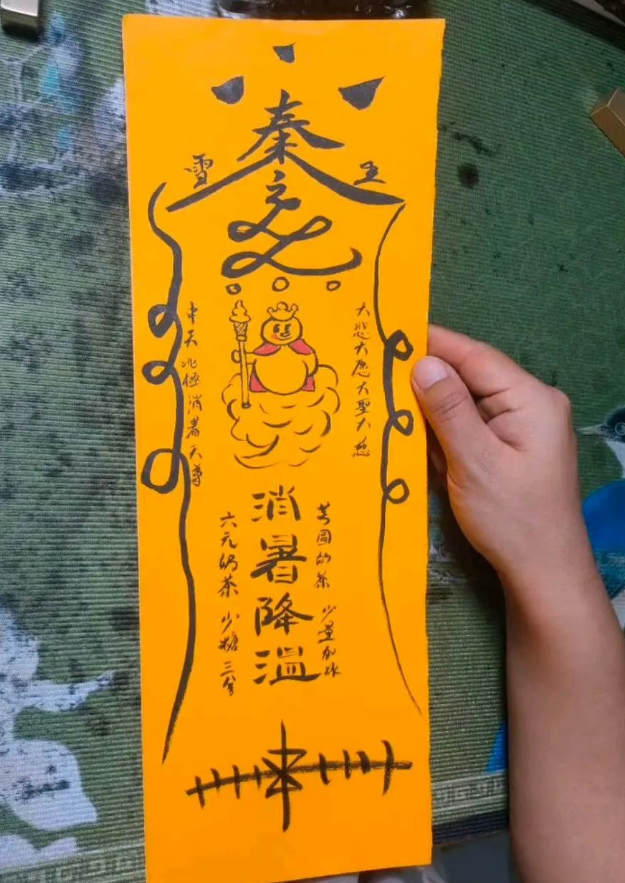 秦
雪 王
大悲大愿大聖大慈
中天北極消暑天尊
消暑降温
芋圆奶茶 少量加冰
六元奶茶 少糖三分